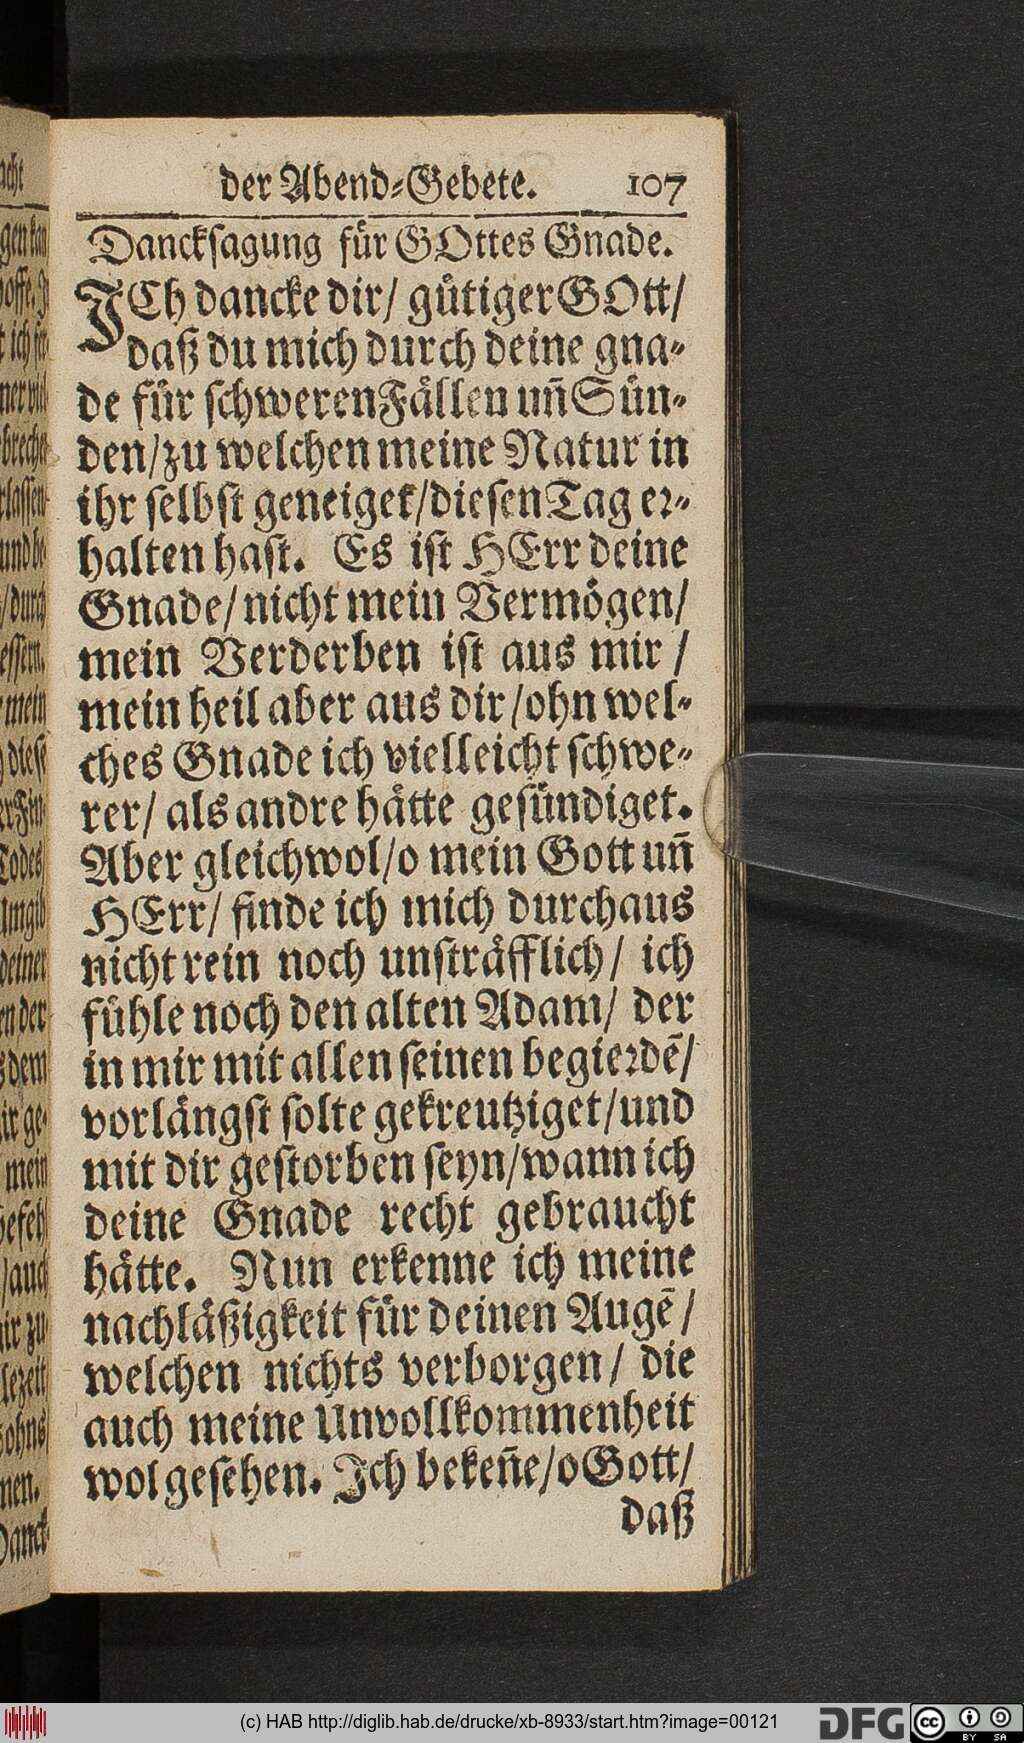 der Abend-Gebete. 107
Dancksagung für GOttes Gnade.
JCh dancke dir/ gütiger GOtt/
daß du mich durch deine gna-
de für schweren Fällen un̄ Sün-
den/ zu welchen meine Natur in
ihr selbst geneiget/ diesen Tag er-
halten hast. Es ist HErr deine
Gnade/ nicht mein Vermögen/
mein Verderben ist aus mir /
mein heil aber aus dir / ohn wel-
ches Gnade ich vielleicht schwe-
rer/ als andre hätte gesündiget.
Aber gleichwol/ o mein Gott un̄
HErr/ finde ich mich durchaus
nicht rein noch unsträfflich/ ich
fühle noch den alten Adam/ der
in mir mit allen seinen begierdē/
vorlängst solte gekreutziget/ und
mit dir gestorben seyn/ wann ich
deine Gnade recht gebraucht
hätte. Nun erkenne ich meine
nachläßigkeit für deinen Augē /
welchen nichts verborgen/ die
auch meine Unvollkommenheit
wol gesehen. Jch beken̄e/ o Gott/
daß
(c) HAB http://diglib.hab.de/drucke/xb-8933/start.htm?image=00121
DFG cc BY SA